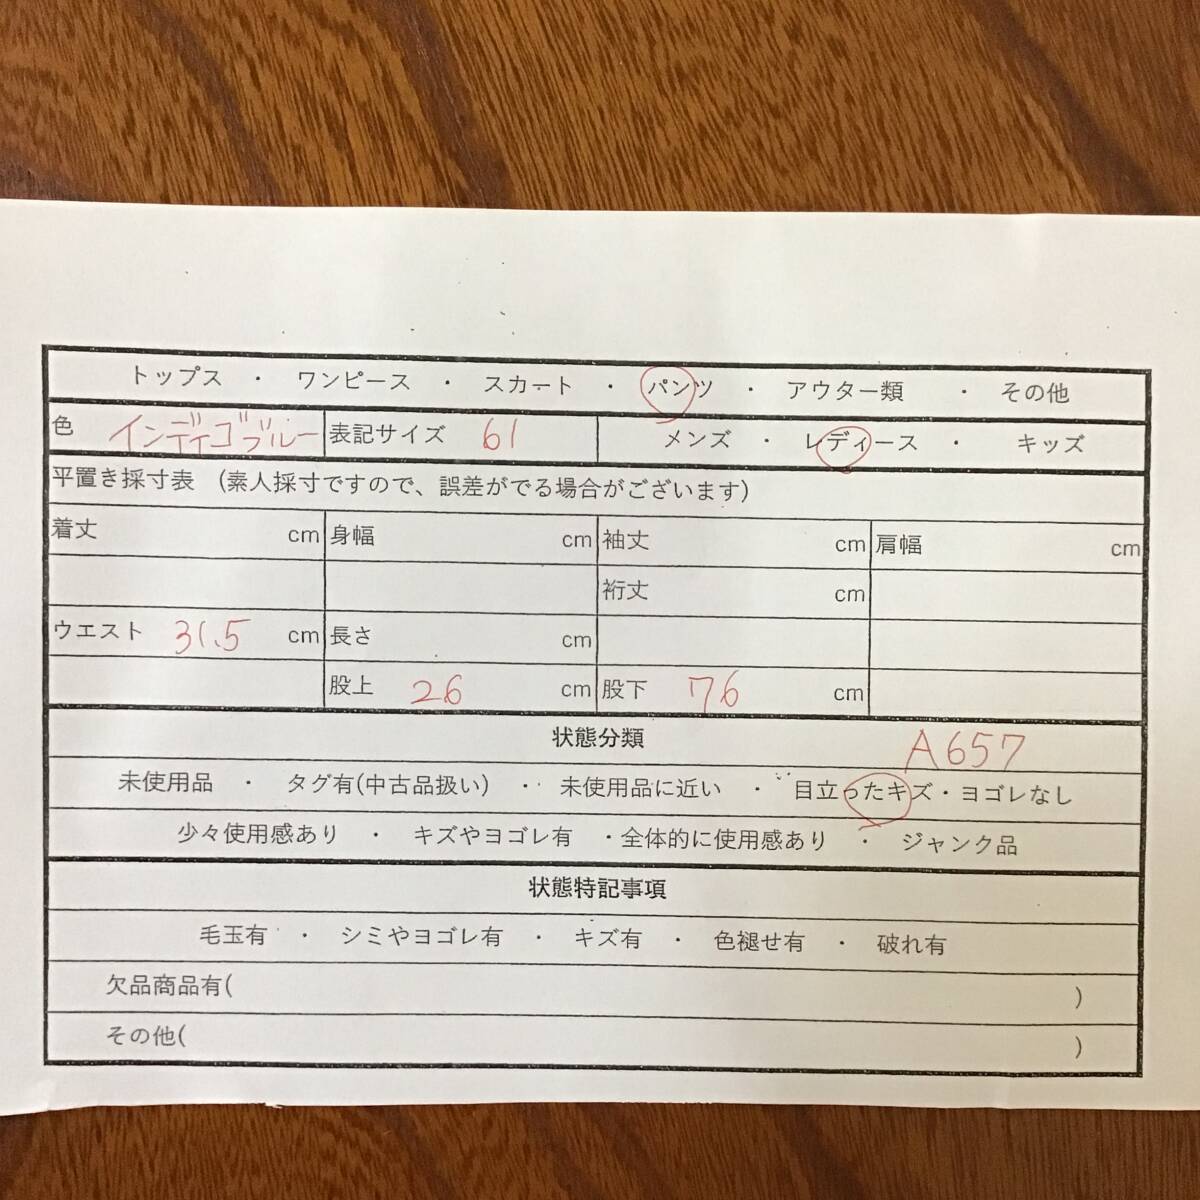 トップス ・ ワンピース ・ スカート ・ パンツ ・ アウター類 ・ その他
色 インディゴブルー 表記サイズ 61 メンズ ・ レディース ・ キッズ
平置き採寸表 (素人採寸ですので、誤差がでる場合がございます)
着丈 cm 身幅 cm 袖丈 cm 肩幅 cm
裄丈 cm
ウエスト 31.5 cm 長さ cm
股上 26 cm 股下 76 cm
状態分類 A657
未使用品 ・ タグ有(中古品扱い) ・ 未使用品に近い ・ 目立ったキズ・ヨゴレなし
少々使用感あり ・ キズやヨゴレ有 ・全体的に使用感あり ・ ジャンク品
状態特記事項
毛玉有 ・ シミやヨゴレ有 ・ キズ有 ・ 色褪せ有 ・ 破れ有
欠品商品有( )
その他( )